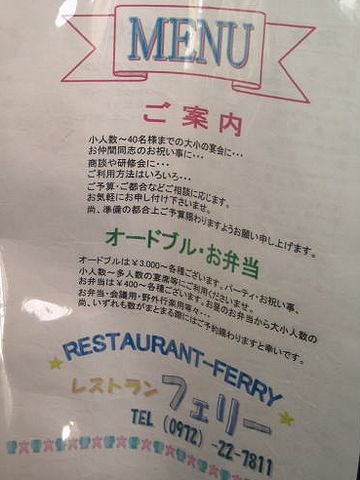 MENU
ご案内
小人数～40名様までの大小の宴会に･･･
お仲間同志のお祝い事に･･･
商談や研修会に･･･
ご利用方法はいろいろ･･･
ご予算・ご都合などご相談に応じます。
お気軽にお申し付け下さいませ。
尚、準備の都合上ご予算賜わりますようお願い申し上げます。
オードブル・お弁当
オードブルは¥3.000～各種ございます。パーティ・お祝い事、
小人数～多人数の宴席等にご利用くださいませ。
お弁当は¥400～各種ございます。お昼のお弁当から大小人数の
お弁当・会議用・野外行楽用等々･･･
尚、いずれも数がまとまる際にはご予約賜わりますと幸いです。
RESTAURANT-FERRY
レストラン フェリー
TEL (0972) -22-7811